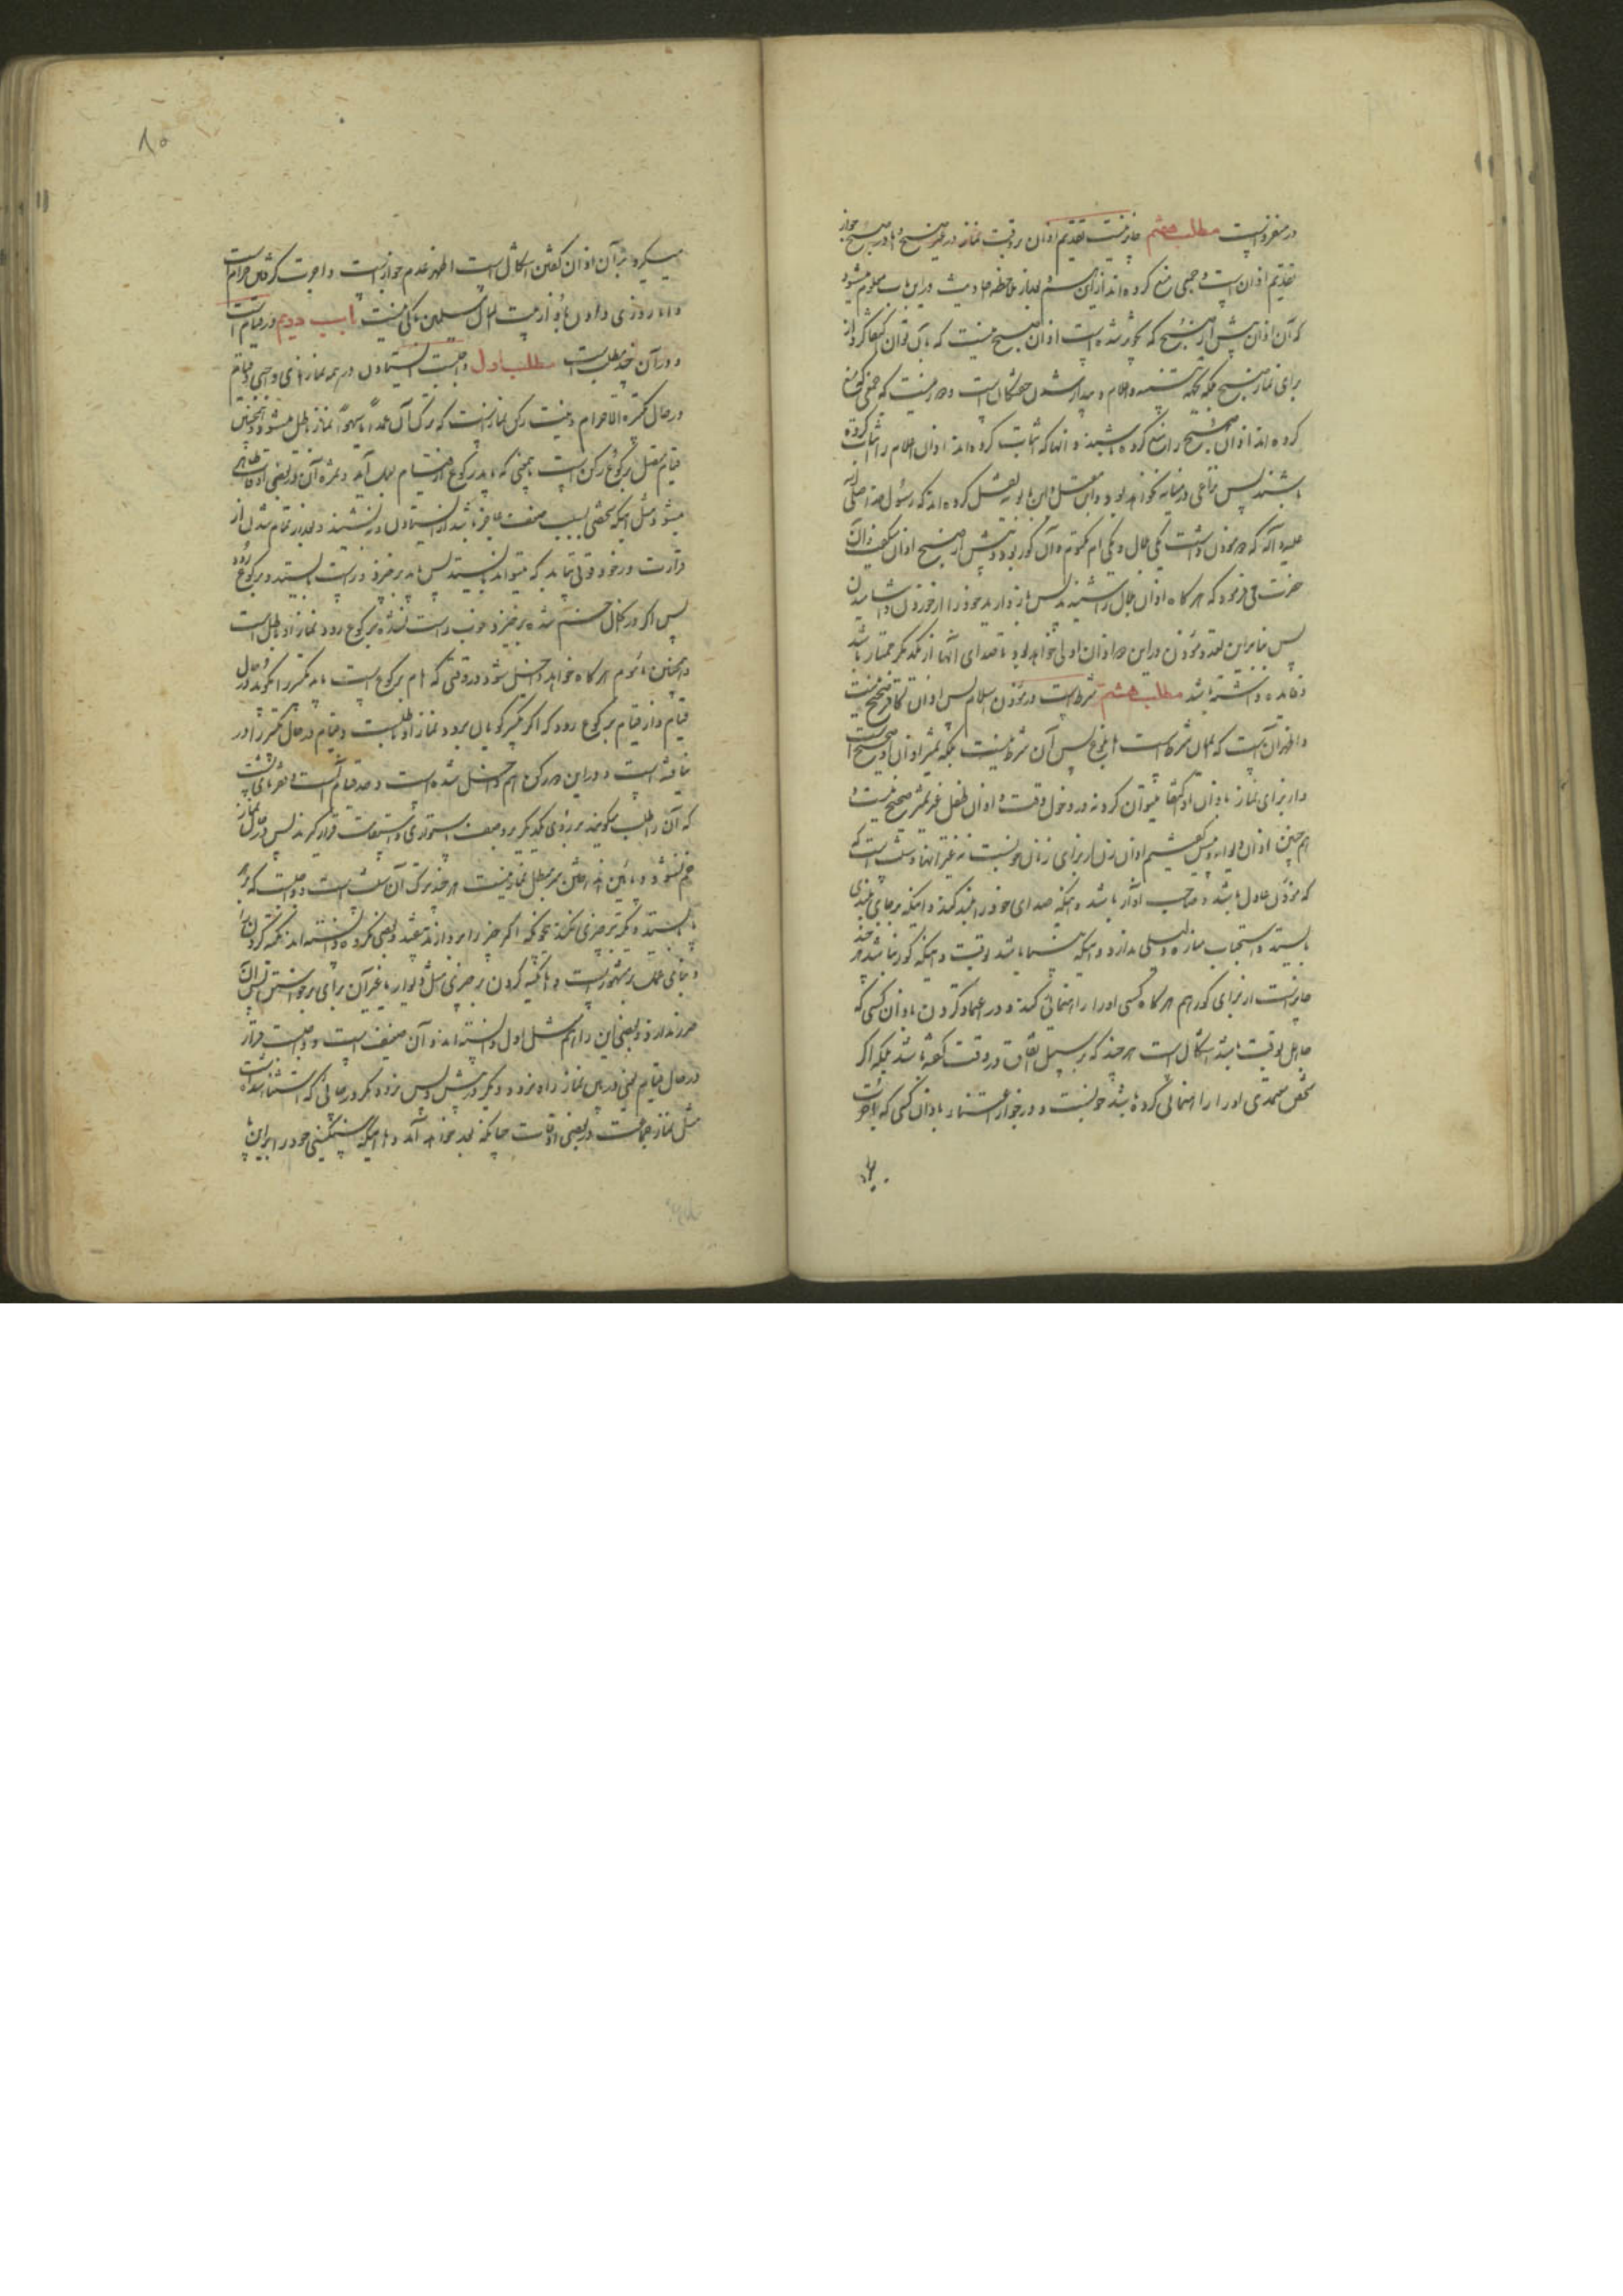 در منفرد نیست مطلب هفتم جایز نیست تقدیم اذان بر وقت نماز در غیر صبح و اما در صبح جواز
تقدیم اذان است و جمعی منع کرده‌اند از آن و بعد از ملاحظه احادیث در این باب معلوم میشود
که آن اذان پیش از صبح که تجویز شده است اذان صبح نیست که بآن توان اکتفا کرد از
برای نماز صبح بلکه بجهة تنبیه و اعلام و بیدار شدن خفتگان است و دور نیست که جمعی که منع
کرده‌اند اذان صبح را منع کرده باشند و آنها که اثبات کرده‌اند اذان اعلام را اثبات کرده
باشند پس نزاعی در میانه نخواهد بود و ابن عقیل و ابن بابویه نقل کرده‌اند که رسول خدا صلی الله
علیه و آله دو مؤذن داشت یکی بلال و یکی ام مکتوم و آن کور بود و پیش از صبح اذان میگفت و آن
حضرت می‌فرمود که هر گاه اذان بلال را شنیدید پس باز دارید خود را از خوردن و آشامیدن
پس بنابراین تعدد مؤذن در این دو اذان اولی خواهد بود تا صدای آنها از یکدیگر ممتاز باشد
و فایده داشته باشد مطلب هشتم شرط است در مؤذن اسلام پس اذان کافر صحیح نیست
و اظهر آن است که ایمان شرط است اما بلوغ پس آن شرط نیست بلکه ممیز اذان او صحیح است
و از برای نماز باذان او اکتفا میتوان کرد نه در دخول وقت و اذان طفل غیر ممیز صحیح نیست و
هم‌چنین اذان دیوانه و میگفتیم اذان زن از برای زنان خوبست نه غیر آنها و سنت است که
که مؤذن عادل باشد و صاحب آواز باشد و اینکه صدای خود را بلند کند و اینکه بر جای بلندی
بایستد و استحباب مناره دلیلی ندارد و اینکه شناسا باشد بوقت و اینکه کور نباشد هر چند
جایز است از برای کور هم هر گاه کسی او را راهنمائی کند و در اعتماد کردن باذان کسی که
جاهل بوقت باشد اشکال است هر چند که بر سبیل اتفاق در وقت گفته باشد بلکه اگر
شخص معتمدی او را راهنمائی کرده باشد خوبست و در جواز اعتبار باذان کسی که اجرت
میکیرد
۸۵
میگیرد بر آن اذان گفتن اشکال است اظهر عدم جواز است و اجرت گرفتن حرام است
و اما روزی دادن باو از بیت المال مسلمین باکی نیست باب دویم در قیام است
و در آن چند مطلب است مطلب اول واجب است ایستادن در همه نمازهای واجبی و قیام
در حال تکبیرة الاحرام و نیت رکن نماز است که بترک آن عمداً یا سهواً نماز باطل میشود و همچنین
قیام متصل برکوع رکن است یعنی که باید رکوع از قیام بعمل آید و ثمره آن در بعضی اوقات ظاهر
میشود مثل اینکه شخصی بسبب ضعف عاجز باشد از ایستادن و بنشیند و بعد از تمام شدن از
قراءت در خود قوتی بیابد که میتواند بایستد پس باید برخیزد و راست بایستد و برکوع رود
پس اگر در کمال خم شده برخیزد و خوب راست نشده برکوع رود نماز او باطل است
و همچنین مأموم هر گاه خواهد داخل شود در وقتی که امام برکوع است باید تکبیر را گوید در حال
قیام و از قیام برکوع رود که اگر تکبیر گویان برود نماز او باطلست و قیام در حال تکبیر را در
نیافته است و در این دو رکن هم داخل شده است و حد قیام آنست که فقره‌های پشت
که آن را صلب میگویند بر روی یکدیگر بر وصف استواری و استقامت قرار گیرند پس در حال نماز
خم نشود و پائین انداختن سر مبطل نماز نیست هر چند ترک آن سنت است و واجب است که بر پا
بایستد و تکیه بر چیزی نکند بنحویکه اگر آن چیز را بردارند بیفتد و بعضی مکروه دانسته‌اند تکیه کردن را
و بنای عمل بر مشهور است و اما تکیه کردن بر چیزی مثل دیوار یا غیر آن برای برخواستن پس آن
ضرر ندارد و بعضی این را هم مثل اول دانسته‌اند و آن ضعیف است و واجب است قرار
در حال قیام یعنی در بین نماز راه نرود و دیگر در پیش و پس نرود مگر در جائی که استثنا شده است
مثل نماز جماعت در بعضی اوقات چنانکه بعد خواهد آمد و اما اینکه سنگینی خود را بر این پا